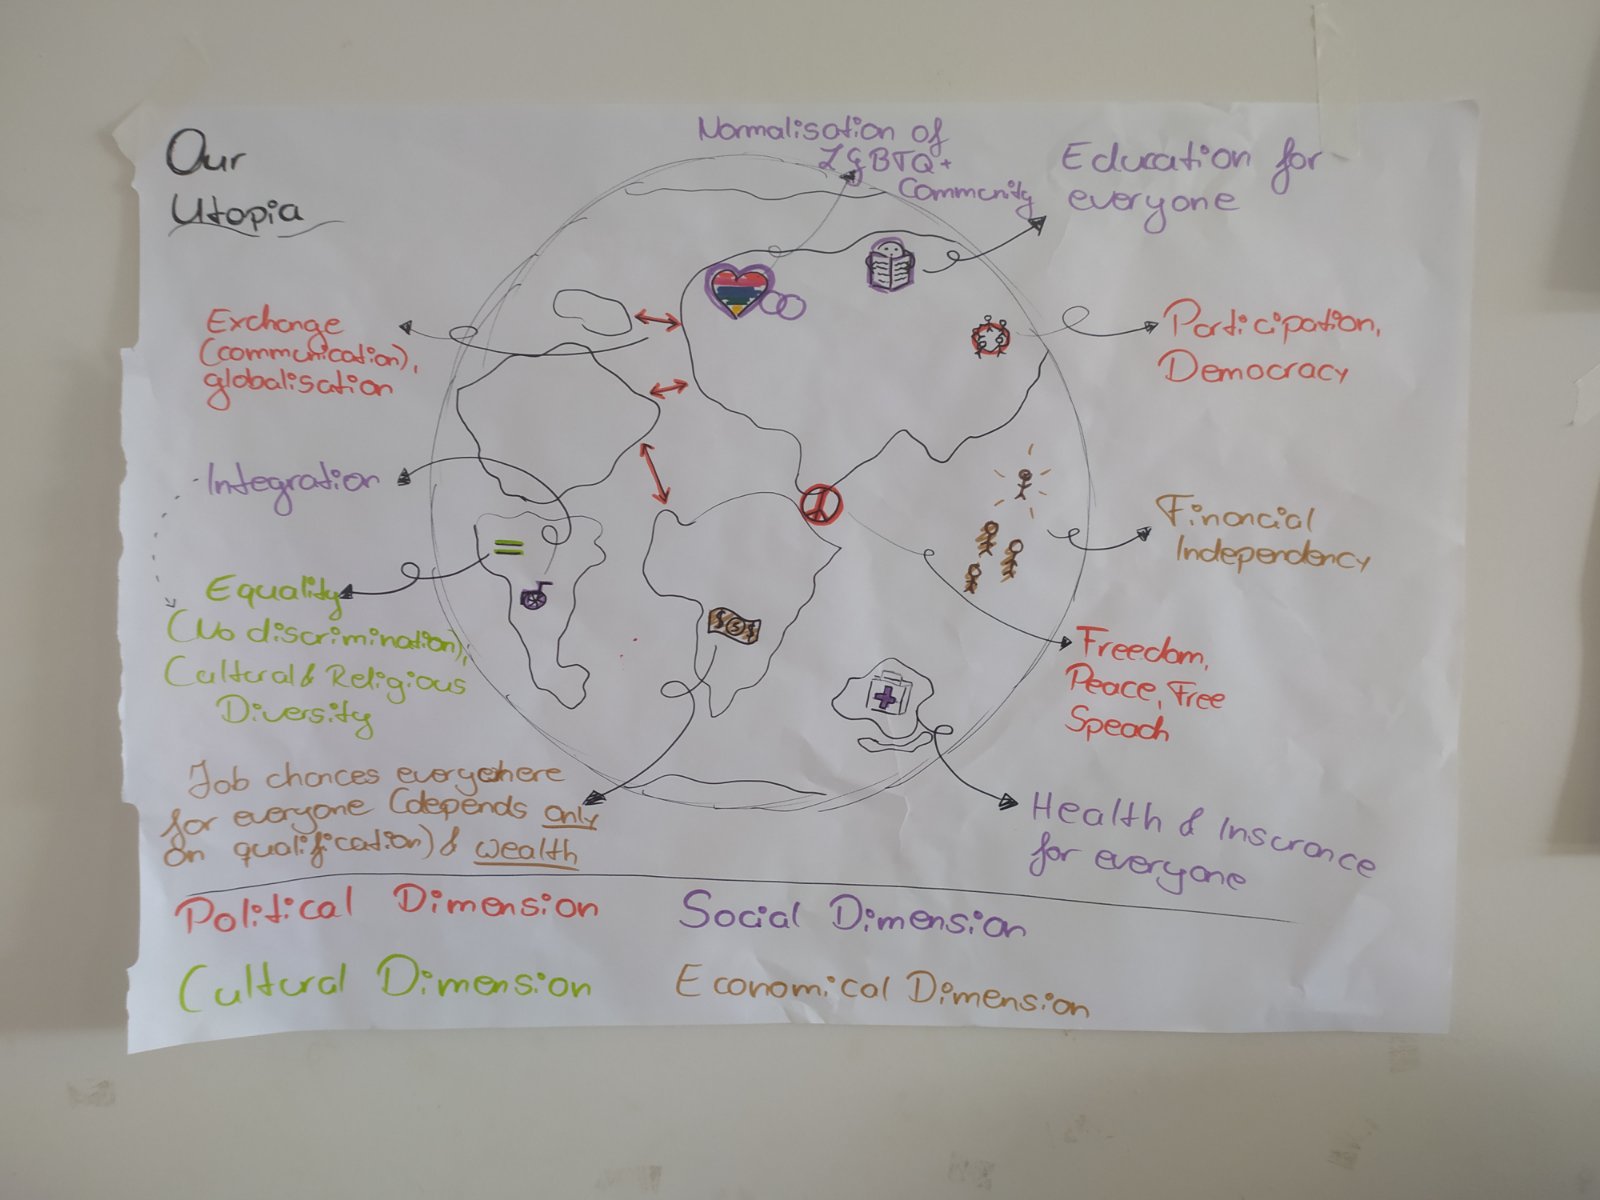 Our
Utopia
Normalisation of
LGBTQ+
Community
Education for
everyone
Exchange
(communication),
globalisation
Participation,
Democracy
Integration
Financial
Independency
Equality
(No discrimination),
Cultural & Religious
Diversity
Freedom,
Peace, Free
Speach
Job chances everywhere
for everyone (depends only
on qualification) & wealth
Health & Insurance
for everyone
$ $ $
Political Dimension
Social Dimension
Cultural Dimension
Economical Dimension